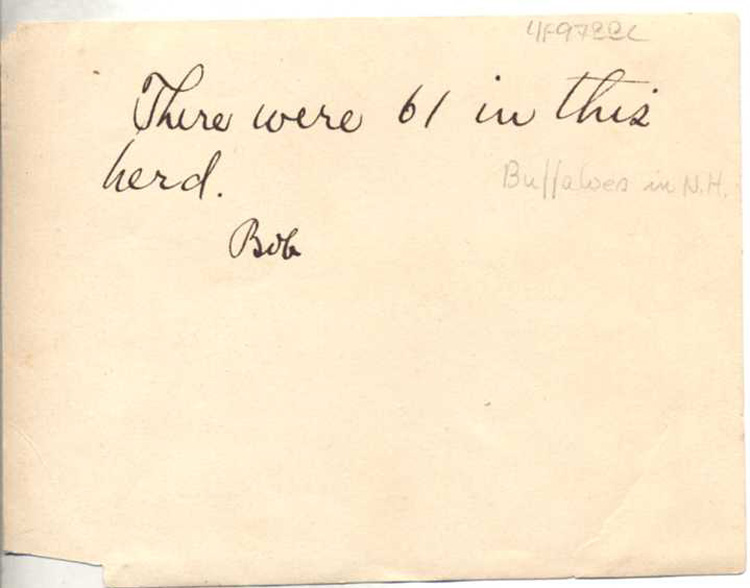 4F9722L
There were 61 in this
herd.
Buffaloes in N.H.
Bob